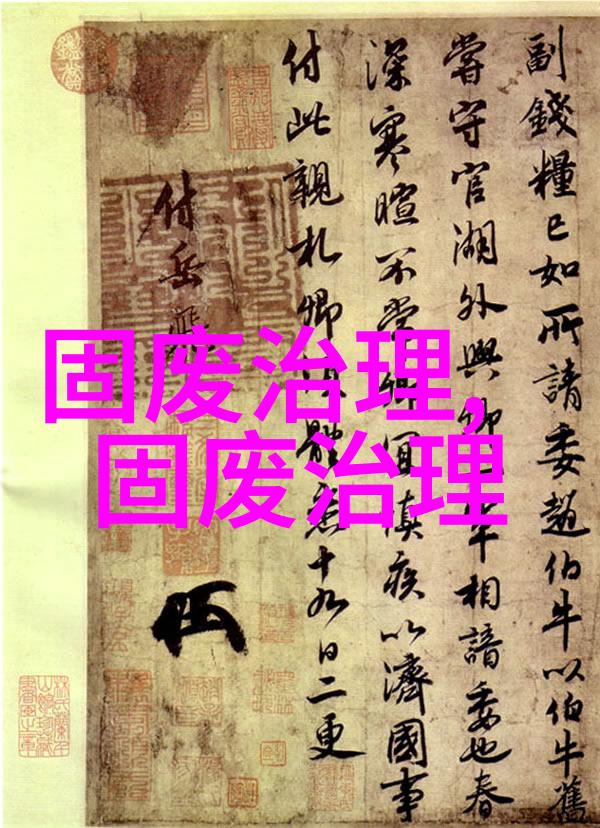 固废治理,
固废治理
副錢糧已如所請委趙伯牛以伯牛舊
嘗守官湖外與卿軍相諳委也春
深寒暄不常卿宜慎疾以濟國事
付此親札卿須體悉十九日二更
付岳飛